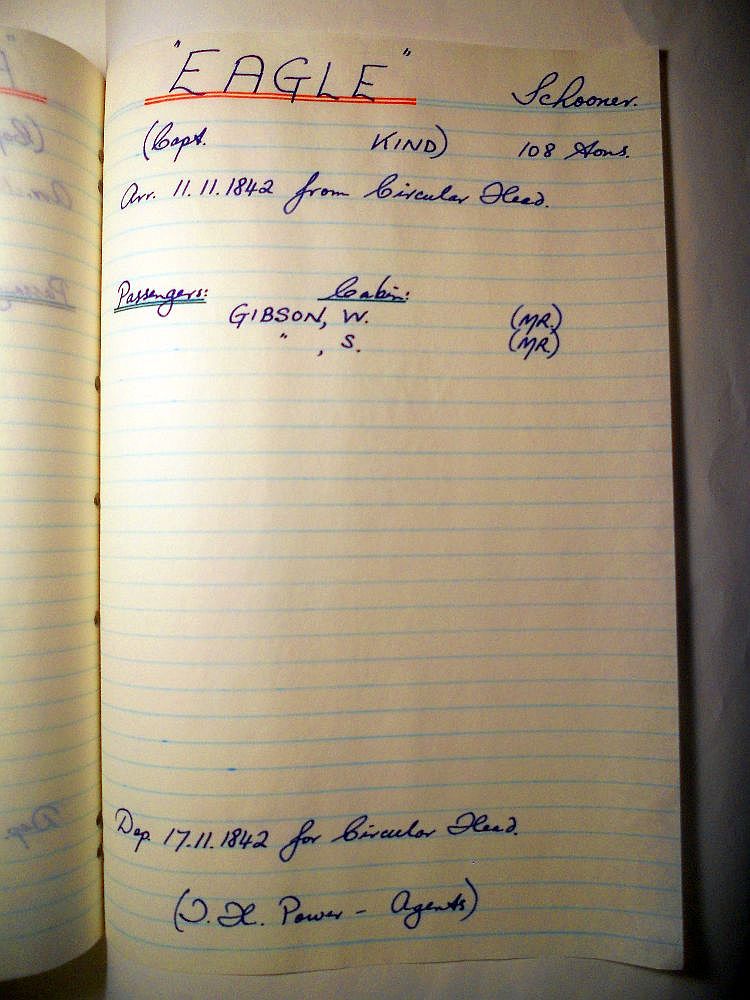 "EAGLE" Schooner.
(Capt. KIND) 108 Tons.
Arr. 11.11.1842 from Circular Head.
Passengers: Cabin:
GIBSON, W. (MR.)
" , S. (MR.)
Dep. 17.11.1842 for Circular Head.
Power - Agents)